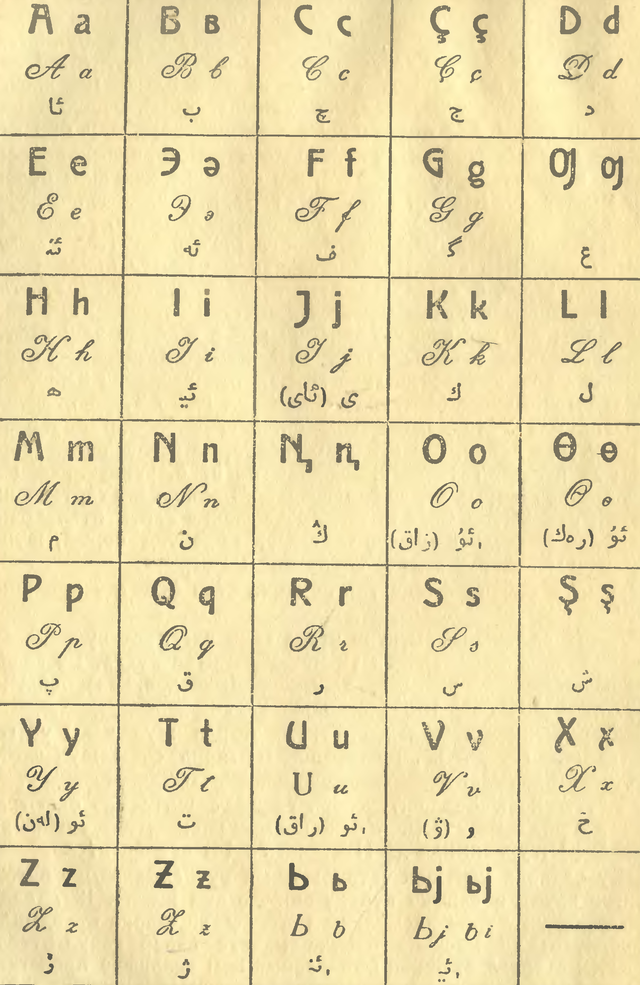 A a B ʙ C c Ç ç D d
A a B b C c Ç ç D d
ئا ب چ ج د
E e Э ə F f G g Ƣ ƣ
E e Э ə F f G g
ئە ف گ ع
H h I i J j K k L l
H h I i J j K k L l
ه ئي ى (ئاى) ك ل
M m N n Ꞑ ꞑ O o Ɵ ɵ
M m N n O o Ɵ ɵ
م ن ،ئۇ (زاق) ئۇ (رەك)
P p Q q R r S s Ş ş
P p Q q R r S s
پ ق ر س ش
Y y T t U u V v X x
Y y T t U u V v X x
ئو (لەن) ت ،ئو (راق) و (ۋ) خ
Z z Ƶ ƶ Ь ь Ьj ьj
Z z Ƶ ƶ Ь ь Ьj ьi
ز ژ ،ئي